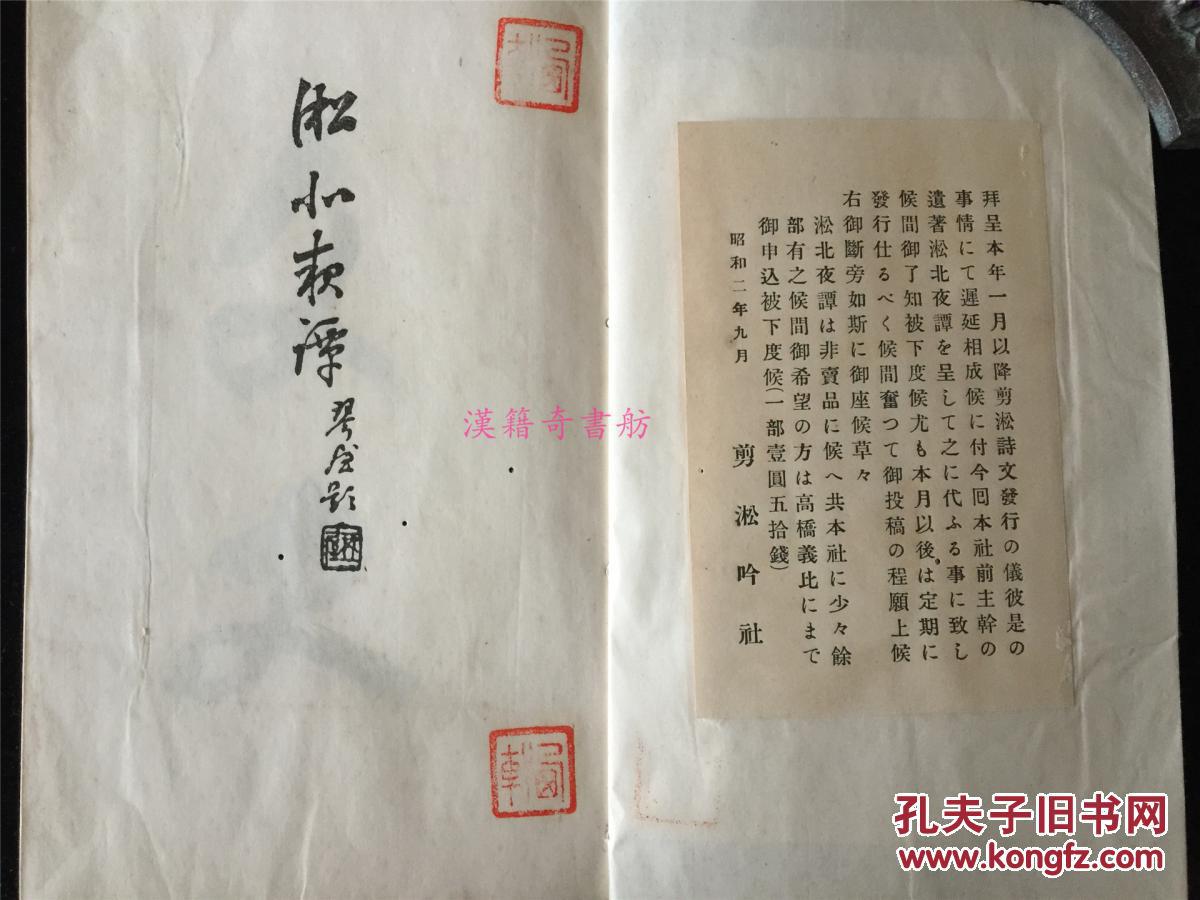 拜呈本年一月以降剪淞詩文發行の儀彼是の
事情にて遲延相成候に付今囘本社前主幹の
遺著淞北夜譚を呈して之に代ふる事に致し
候間御了知被下度候尤も本月以後は定期に
發行仕るべく候間奮つて御投稿の程願上候
右御斷旁如斯に御座候草々
淞北夜譚は非賣品に候へ共本社に少々餘
部有之候間御希望の方は高橋義比にまで
御申込被下度候(一部壹圓五拾錢)
昭和二年九月
剪淞吟社
淞北夜譚
題
漢籍奇書舫
孔夫子旧书网
www.kongfz.com